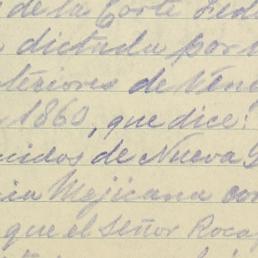 de la Corte Fede
dictada por
teriores de Ven
1860, que dice:
cidos de Nueva
cia Mejicana con
que el Señor Roca